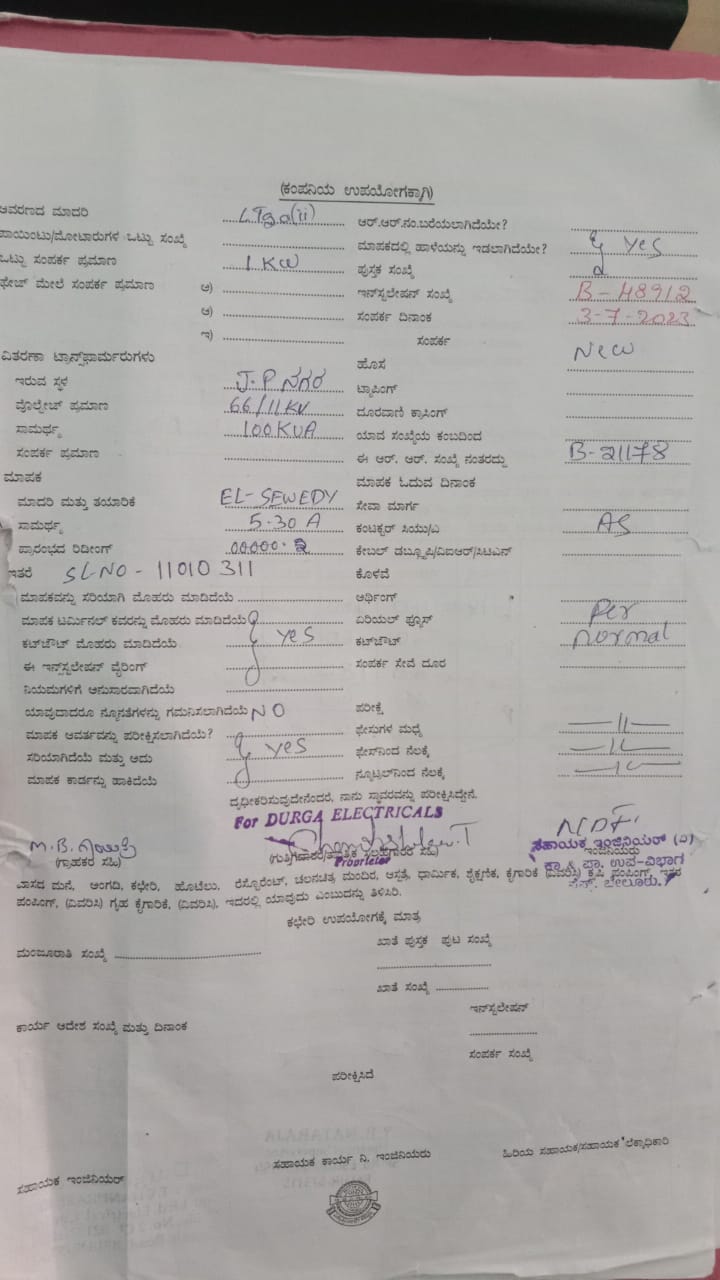 (ಕಂಪನಿಯ ಉಪಯೋಗಕ್ಕಾಗಿ)
ಆವರಣದ ಮಾದರಿ ಆರ್.ಆರ್.ನಂ.ಬರೆಯಲಾಗಿದೆಯೇ?
ಪಾಯಿಂಟು/ಮೋಟಾರುಗಳ ಒಟ್ಟು ಸಂಖ್ಯೆ ಮಾಪಕದಲ್ಲಿ ಹಾಳೆಯನ್ನು ಇಡಲಾಗಿದೆಯೇ? yes
ಒಟ್ಟು ಸಂಪರ್ಕ ಪ್ರಮಾಣ 1 KW ಪುಸ್ತಕ ಸಂಖ್ಯೆ
ಫೇಜ್ ಮೇಲೆ ಸಂಪರ್ಕ ಪ್ರಮಾಣ ಅ) ಇನ್‌ಸ್ಟಲೇಷನ್ ಸಂಖ್ಯೆ B-48912
ಆ) ಸಂಪರ್ಕ ದಿನಾಂಕ 3-7-2023
ಇ) ಸಂಪರ್ಕ
ವಿತರಣಾ ಟ್ರಾನ್ಸ್‌ಫಾರ್ಮರುಗಳು ಹೊಸ New
ಇರುವ ಸ್ಥಳ J.P ನಗರ ಟ್ಯಾಪಿಂಗ್
ವೋಲ್ಟೇಜ್ ಪ್ರಮಾಣ 66/11 KV ದೂರವಾಣಿ ಕ್ರಾಸಿಂಗ್
ಸಾಮರ್ಥ್ಯ 100 KVA ಯಾವ ಸಂಖ್ಯೆಯ ಕಂಬದಿಂದ
ಸಂಪರ್ಕ ಪ್ರಮಾಣ ಈ ಆರ್. ಆರ್. ಸಂಖ್ಯೆ ನಂತರದ್ದು B-21178
ಮಾಪಕ ಮಾಪಕ ಓದುವ ದಿನಾಂಕ
ಮಾದರಿ ಮತ್ತು ತಯಾರಿಕೆ EL-SEWEDY ಸೇವಾ ಮಾರ್ಗ
ಸಾಮರ್ಥ್ಯ 5-30 A ಕಂಟಕ್ಟರ್ ಸಿಯು/ಎ AS
ಪ್ರಾರಂಭದ ರಿಡಿಂಗ್ 00000.2 ಕೇಬಲ್ ಡಬ್ಲ್ಯೂಪಿ/ವಿಐಆರ್/ಸಿಟಿಎನ್
ಇತರೆ SL-NO - 11010311 ಕೊಳವೆ
ಮಾಪಕವನ್ನು ಸರಿಯಾಗಿ ಮೊಹರು ಮಾಡಿದೆಯೆ ಅರ್ಥಿಂಗ್
ಮಾಪಕ ಟರ್ಮಿನಲ್ ಕವರನ್ನು ಮೊಹರು ಮಾಡಿದೆಯೆ ಏರಿಯಲ್ ಫ್ಯೂಸ್ Per
ಕಟ್‌ಔಟ್ ಮೊಹರು ಮಾಡಿದೆಯೆ yes ಕಟ್‌ಔಟ್ normal
ಈ ಇನ್‌ಸ್ಟಲೇಷನ್ ವೈರಿಂಗ್ ಸಂಪರ್ಕ ಸೇವೆ ದೂರ
ನಿಯಮಗಳಿಗೆ ಅನುಸಾರವಾಗಿದೆಯೆ
ಯಾವುದಾದರೂ ನ್ಯೂನತೆಗಳನ್ನು ಗಮನಿಸಲಾಗಿದೆಯೆ NO ಪರೀಕ್ಷೆ
ಮಾಪಕ ಆವರ್ತವನ್ನು ಪರೀಕ್ಷಿಸಲಾಗಿದೆಯೆ? ಫೇಸುಗಳ ಮಧ್ಯೆ —11—
ಸರಿಯಾಗಿದೆಯೆ ಮತ್ತು ಅದು yes ಫೇಸ್‌ನಿಂದ ನೆಲಕ್ಕೆ —11—
ಮಾಪಕ ಕಾರ್ಡನ್ನು ಹಾಕಿದೆಯೆ ನ್ಯೂಟ್ರಲ್‌ನಿಂದ ನೆಲಕ್ಕೆ —11—
ದೃಢೀಕರಿಸುವುದೇನೆಂದರೆ, ನಾನು ಸ್ಥಾವರವನ್ನು ಪರೀಕ್ಷಿಸಿದ್ದೇನೆ.
For DURGA ELECTRICALS
M.B.
(ಗ್ರಾಹಕರ ಸಹಿ) Proprietor ಸಹಾಯಕ ಇಂಜಿನಿಯರ್ (ವಿ)
ಇಂಜಿನಿಯರು
ವಾಸದ ಮನೆ, ಅಂಗಡಿ, ಕಛೇರಿ, ಹೊಟೆಲು, ರೆಸ್ಟೋರೆಂಟ್, ಚಲನಚಿತ್ರ ಮಂದಿರ, ಆಸ್ಪತ್ರೆ, ಧಾರ್ಮಿಕ, ಶೈಕ್ಷಣಿಕ, ಕೈಗಾರಿಕೆ (ವಿವರಿಸಿ) ಕೃಷಿ ಪಂಪಿಂಗ್, ಇತರ
ಪಂಪಿಂಗ್, (ವಿವರಿಸಿ) ಗೃಹ ಕೈಗಾರಿಕೆ, (ವಿವರಿಸಿ), ಇದರಲ್ಲಿ ಯಾವುದು ಎಂಬುದನ್ನು ತಿಳಿಸಿರಿ. ಬೇಲೂರು.
ಕಛೇರಿ ಉಪಯೋಗಕ್ಕೆ ಮಾತ್ರ
ಮಂಜೂರಾತಿ ಸಂಖ್ಯೆ ಖಾತೆ ಪುಸ್ತಕ ಪುಟ ಸಂಖ್ಯೆ
ಖಾತೆ ಸಂಖ್ಯೆ
ಇನ್‌ಸ್ಟಲೇಷನ್
ಕಾರ್ಯ ಆದೇಶ ಸಂಖ್ಯೆ ಮತ್ತು ದಿನಾಂಕ
ಸಂಪರ್ಕ ಸಂಖ್ಯೆ
ಪರೀಕ್ಷಿಸಿದೆ
ಸಹಾಯಕ ಇಂಜಿನಿಯರ್ ಸಹಾಯಕ ಕಾರ್ಯ ನಿ. ಇಂಜಿನಿಯರು ಹಿರಿಯ ಸಹಾಯಕ/ಸಹಾಯಕ ಲೆಕ್ಕಾಧಿಕಾರಿ